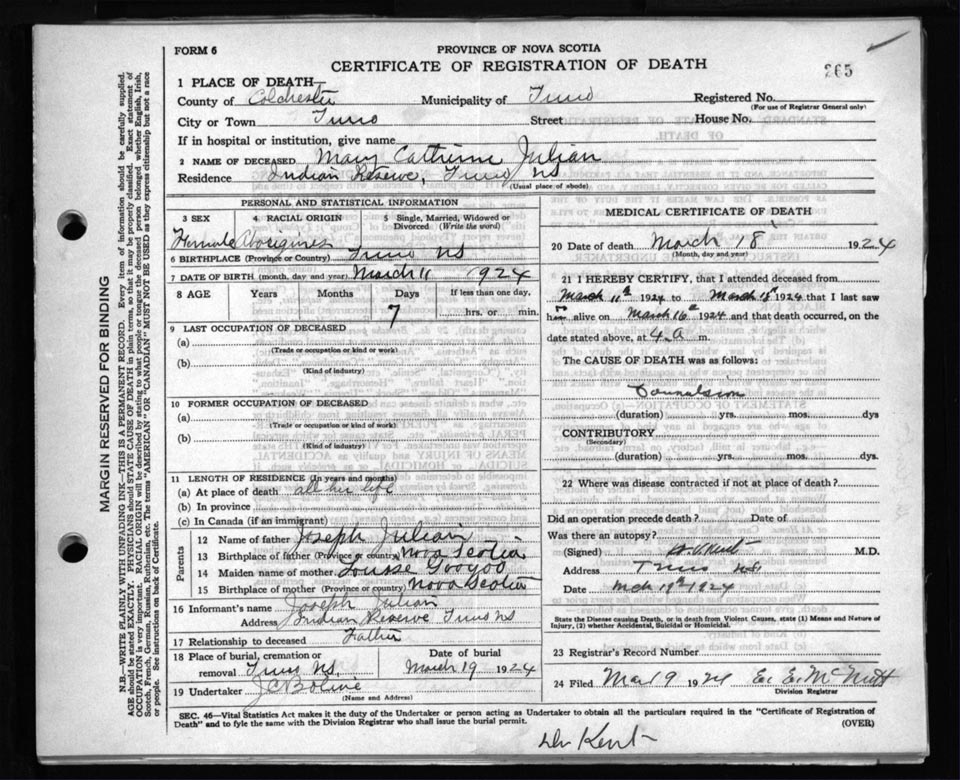 FORM 6
PROVINCE OF NOVA SCOTIA
CERTIFICATE OF REGISTRATION OF DEATH
265
1 PLACE OF DEATH—
County of Colchester Municipality of Truro Registered No.
(For use of Registrar General only)
City or Town Truro Street House No.
If in hospital or institution, give name
2 NAME OF DECEASED Mary Cathrine Julian
Residence Indian Reserve, Truro NS
(Usual place of abode)
PERSONAL AND STATISTICAL INFORMATION
3 SEX 4 RACIAL ORIGIN 5 Single, Married, Widowed or Divorced (Write the word)
Female Aborigines
6 BIRTHPLACE (Province or Country) Truro NS
7 DATE OF BIRTH (month, day and year) March 11 1924
8 AGE Years Months Days If less than one day,
7 hrs. or min.
9 LAST OCCUPATION OF DECEASED
(a)
(Trade or occupation or kind or work)
(b)
(Kind of industry)
10 FORMER OCCUPATION OF DECEASED
(a)
(Trade or occupation or kind of work)
(b)
(Kind of industry)
11 LENGTH OF RESIDENCE (In years and months)
(a) At place of death all her life
(b) In province
(c) In Canada (if an immigrant)
Parents
12 Name of father Joseph Julian
13 Birthplace of father (Province or country) Nova Scotia
14 Maiden name of mother
15 Birthplace of mother (Province or country) Nova Scotia
16 Informant's name Joseph Julian
Address Indian Reserve Truro NS
17 Relationship to deceased Father
18 Place of burial, cremation or removal Truro NS. Date of burial March 19 1924
19 Undertaker
(Name and Address)
MEDICAL CERTIFICATE OF DEATH
20 Date of death March 18 1924
(Month, day and year)
21 I HEREBY CERTIFY, that I attended deceased from
March 11th 1924 to March 18th 1924 that I last saw
her alive on March 16th 1924 and that death occurred, on the
date stated above, at 4 A m.
The CAUSE OF DEATH was as follows:
(duration) yrs. mos. dys
CONTRIBUTORY
(Secondary)
(duration) yrs. mos. dys.
22 Where was disease contracted if not at place of death?
Did an operation precede death? Date of
Was there an autopsy?
(Signed) Kent M.D.
Address Truro N.S.
Date Mch 19th 1924
State the Disease causing Death, or in death from Violent Causes, state (1) Means and Nature of
Injury, (2) whether Accidental, Suicidal or Homicidal.
23 Registrar's Record Number
24 Filed Mar 19 1924 E. E. McNutt
Division Registrar
SEC. 46—Vital Statistics Act makes it the duty of the Undertaker or person acting as Undertaker to obtain all the particulars required in the "Certificate of Registration of
Death" and to fyle the same with the Division Registrar who shall issue the burial permit. (OVER)
Dr Kent
MARGIN RESERVED FOR BINDING
N.B.—WRITE PLAINLY WITH UNFADING INK—THIS IS A PERMANENT RECORD. Every item of information should be carefully supplied.
AGE should be stated EXACTLY. PHYSICIANS should STATE CAUSE OF DEATH in plain terms, so that it may be properly classified. Exact statement of
OCCUPATION is very important. RACIAL ORIGIN will be described by stating to what people or tongue the deceased person belonged whether English, Irish,
Scotch, French, German, Russian, Ruthenian, etc. The terms "AMERICAN" OR "CANADIAN" MUST NOT BE USED as they express citizenship but not a race
or people. See instructions on back of Certificate.